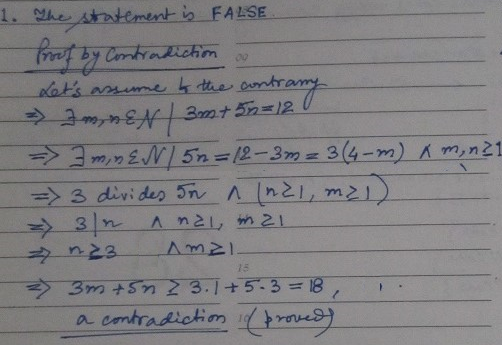 1. The statement is FALSE.
Proof by Contradiction
Let's assume to the contrary
⇒ ∃ m, n ∈ N | 3m + 5n = 12
⇒ ∃ m, n ∈ N | 5n = 12 - 3m = 3(4 - m) ∧ m, n ≥ 1
⇒ 3 divides 5n ∧ (n ≥ 1, m ≥ 1)
⇒ 3|n ∧ n ≥ 1, m ≥ 1
⇒ n ≥ 3 ∧ m ≥ 1
⇒ 3m + 5n ≥ 3.1 + 5.3 = 18,
a contradiction (proved)